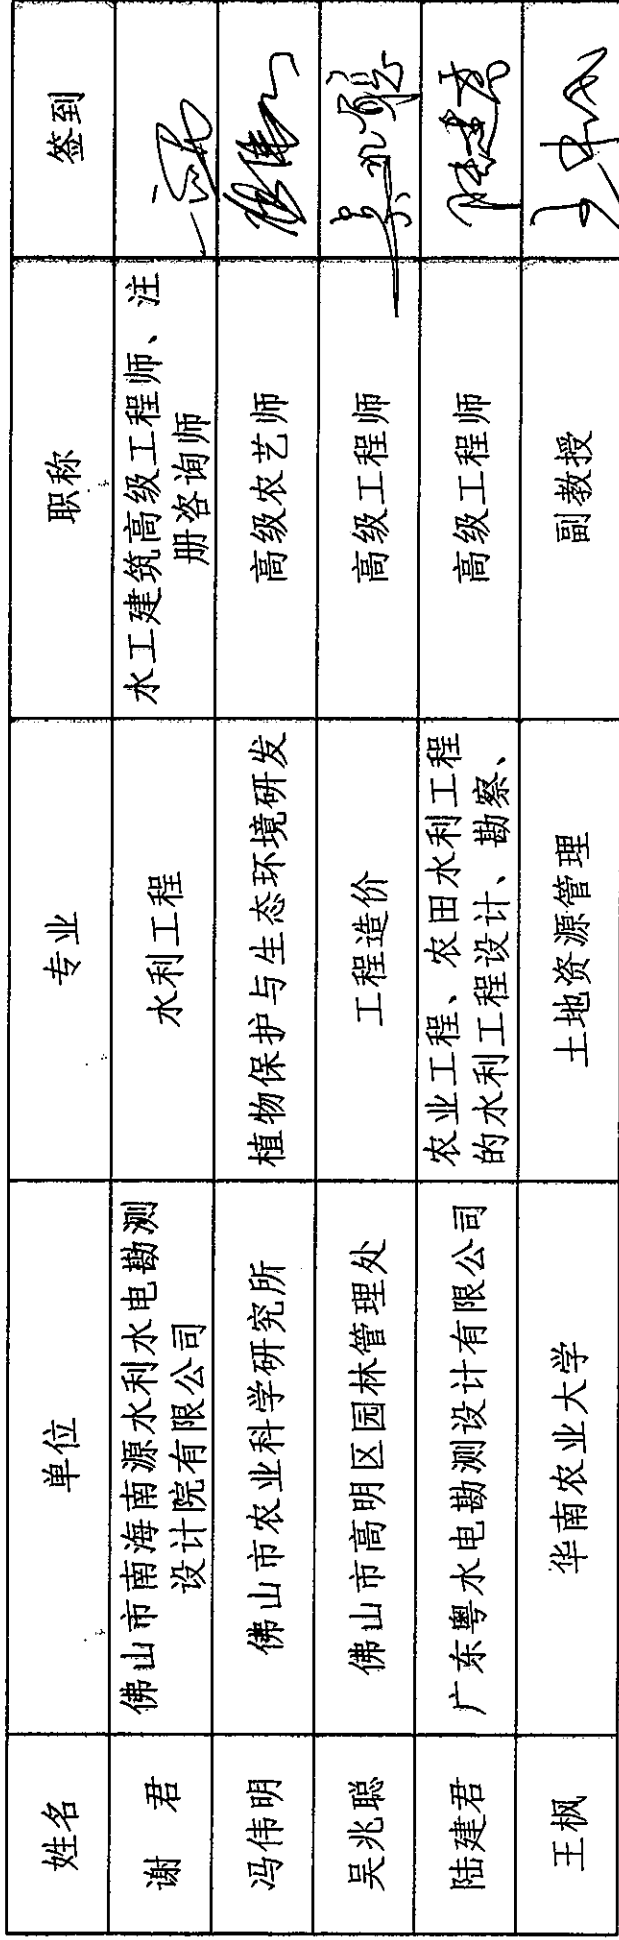 姓名 单位 专业 职称 签到
谢 君 佛山市南海南源水利水电勘测 水利工程 水工建筑高级工程师、注
设计院有限公司 册咨询师
冯伟明 佛山市农业科学研究所 植物保护与生态环境研发 高级农艺师
吴兆聪 佛山市高明区园林管理处 工程造价 高级工程师 吴兆聪
陆建君 广东粤水电勘测设计有限公司 农业工程、农田水利工程 高级工程师 陆建君
的水利工程设计、勘察、
王枫 华南农业大学 土地资源管理 副教授 王枫